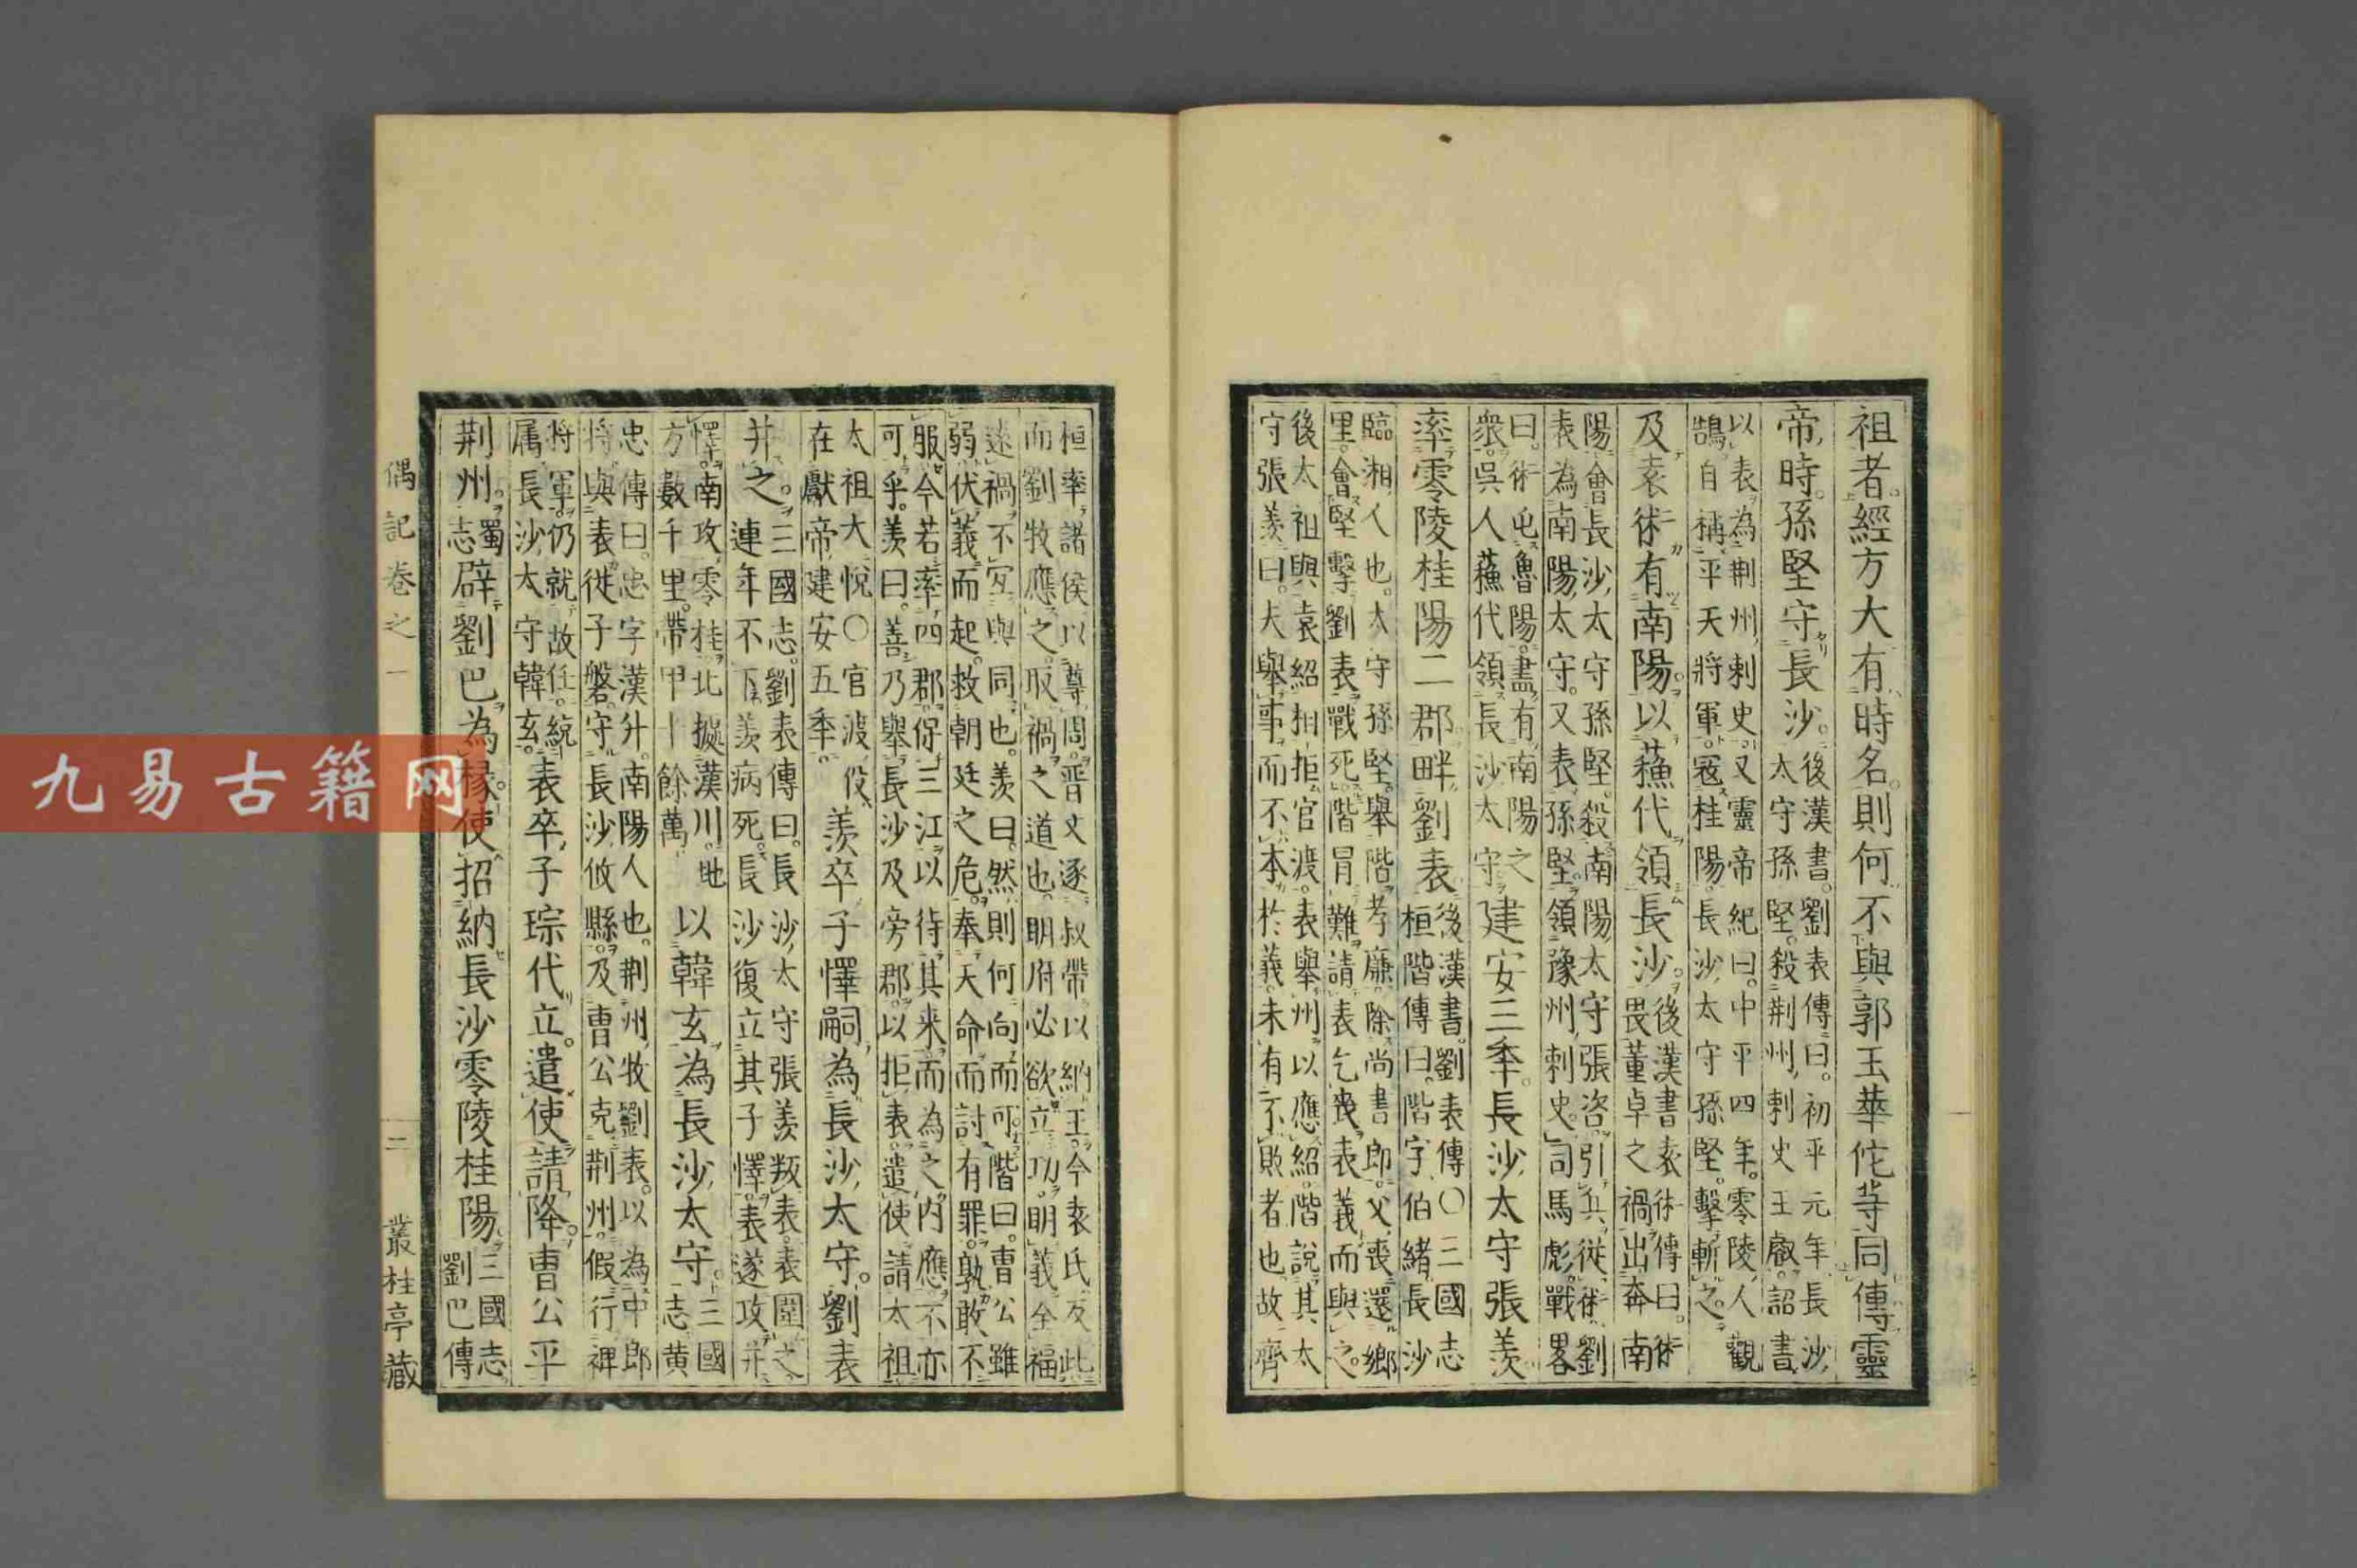 祖者經方大有時名則何不與郭玉華佗等同傳靈
帝時孫堅守長沙後漢書劉表傳曰初平元年長沙
太守孫堅殺荆州刺史王叡詔書
以表為荆州刺史又靈帝紀曰中平四年零陵人觀
鵠自稱平天將軍寇桂陽長沙太守孫堅擊斬之
及袁術有南陽以蘓代領長沙後漢書袁術傳曰術
畏董卓之禍出奔南
陽會長沙太守孫堅殺南陽太守張咨引兵從術劉
表為南陽太守又表孫堅領豫州刺史司馬彪戰畧
曰術屯魯陽盡有南陽之
衆吳人蘓代領長沙太守建安三年長沙太守張羡
率零陵桂陽二郡畔劉表後漢書劉表傳〇三國志
桓階傳曰階字伯緒長沙
臨湘人也太守孫堅舉階孝廉除尚書郎父喪還鄉
里會堅擊劉表戰死階冒難請表乞喪表義而與之
後太祖與袁紹相拒官渡表舉州以應紹階說其太
守張羡曰夫舉事而不本於義未有不敗者也故齊
桓率諸侯以尊周晋文逐叔帶以納王今袁氏反此
而劉牧應之取禍之道也明府必欲立功明義全福
遠禍不宜與同也羡曰然則何向而可階曰曹公雖
弱伏義而起救朝廷之危奉天命而討有罪孰敢不
服今若率四郡保三江以待其来而為之内應不亦
可乎羡曰善乃舉長沙及旁郡以拒表遣使請太祖
太祖大悅〇官渡役
在獻帝建安五年羡卒子懌嗣為長沙太守劉表
并之三國志劉表傳曰長沙太守張羡叛表表圍之
連年不下羡病死長沙復立其子懌表遂攻并
懌南攻零桂北據漢川地
方數千里帶甲十餘萬以韓玄為長沙太守三國
志黄
忠傳曰忠字漢升南陽人也荆州牧劉表以為中郎
將與表從子磐守長沙攸縣及曹公克荆州假行裨
將軍仍就故任統
属長沙太守韓玄表卒子琮代立遣使請降曹公平
荆州蜀
志辟劉巴為掾使招納長沙零陵桂陽三國志
劉巴傳
偶記卷之一
二
叢桂亭藏
九易古籍网